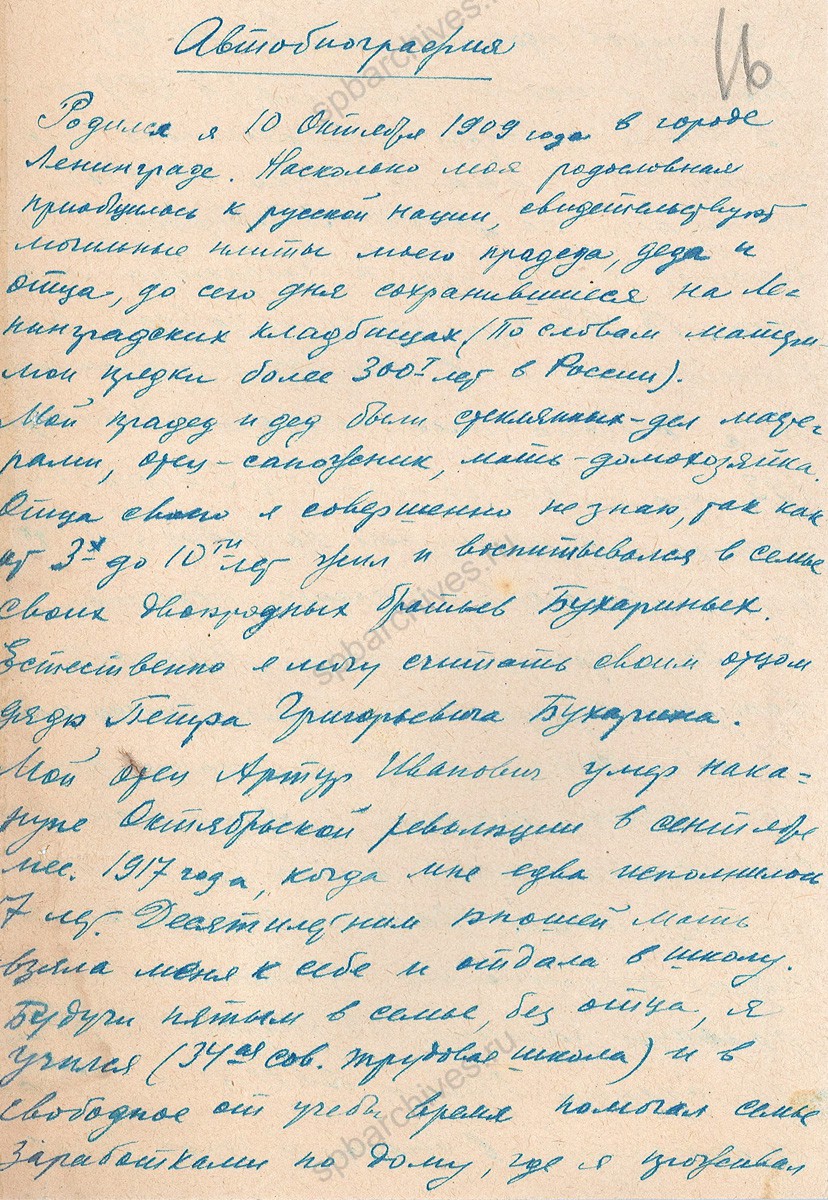 16
Автобиография
Родился я 10 Октября 1909 года в городе
Ленинграде. Насколько моя родословная
приобщилось к русской нации, свидетельствуют
могильные плиты моего прадеда, деда и
отца, до сего дня сохранившиеся на Ле-
нинградских кладбищах (По словам матери-
мои предки более 300т лет в России).
Мой прадед и дед были стеклянных-дел масте-
рами, отец-сапожник, мать-домохозяйка.
Отца своего я совершенно не знаю, так как
от 3х до 10ти лет жил и воспитывался в семье
своих двоюродных братьев Бухариных.
Естественно я могу считать своим отцом
дядю Петра Григорьевича Бухарина.
Мой отец Артур Иванович умер нака-
нуне Октябрьской революции в сентябре
мес. 1917 года, когда мне едва исполнилось
7 лет. Десятилетним юношей мать
взяла меня к себе и отдала в школу.
Будучи пятым в семье, без отца, я
учился (34ая сов. трудовая школа) и в
свободное от учебы время помогал семье
заработками по дому, где я проживал
spbarchives.ru
spbarchives.ru
spbarchives.ru
spbarchives.ru